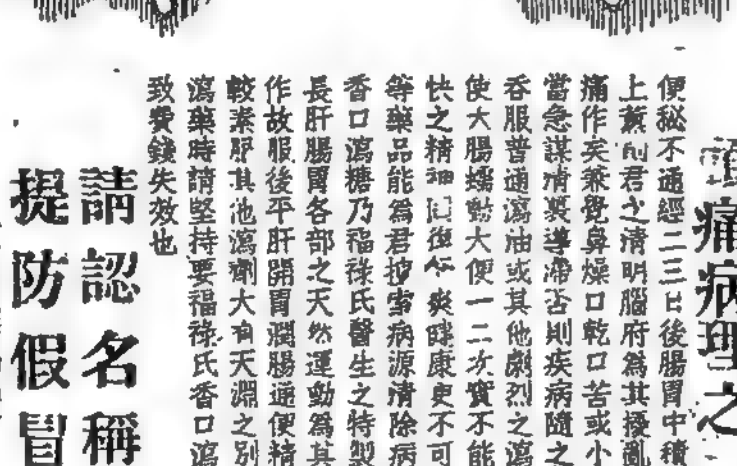 頭痛病理之
便秘不通經二三日後腸胃中積
上薰 君之清明腦府爲其擾亂
痛作矣兼覺鼻燥口乾口苦或小
當急謀清裏導滯否則疾病隨之
吞服普通瀉油或其他劇烈之瀉
使大腸蠕動大便一二次實不能
快之精神 復 爽健康更不可
等藥品能爲君 病源清除病
香口瀉糖乃福祿氏醫生之特製
長肝腸胃各部之天然運動爲其
作故服後平肝開胃潤腸通便精
較素服其他瀉劑大有天淵之別
瀉藥時請堅持要福祿氏香口瀉
致費錢失效也
請認名稱
提防假冒